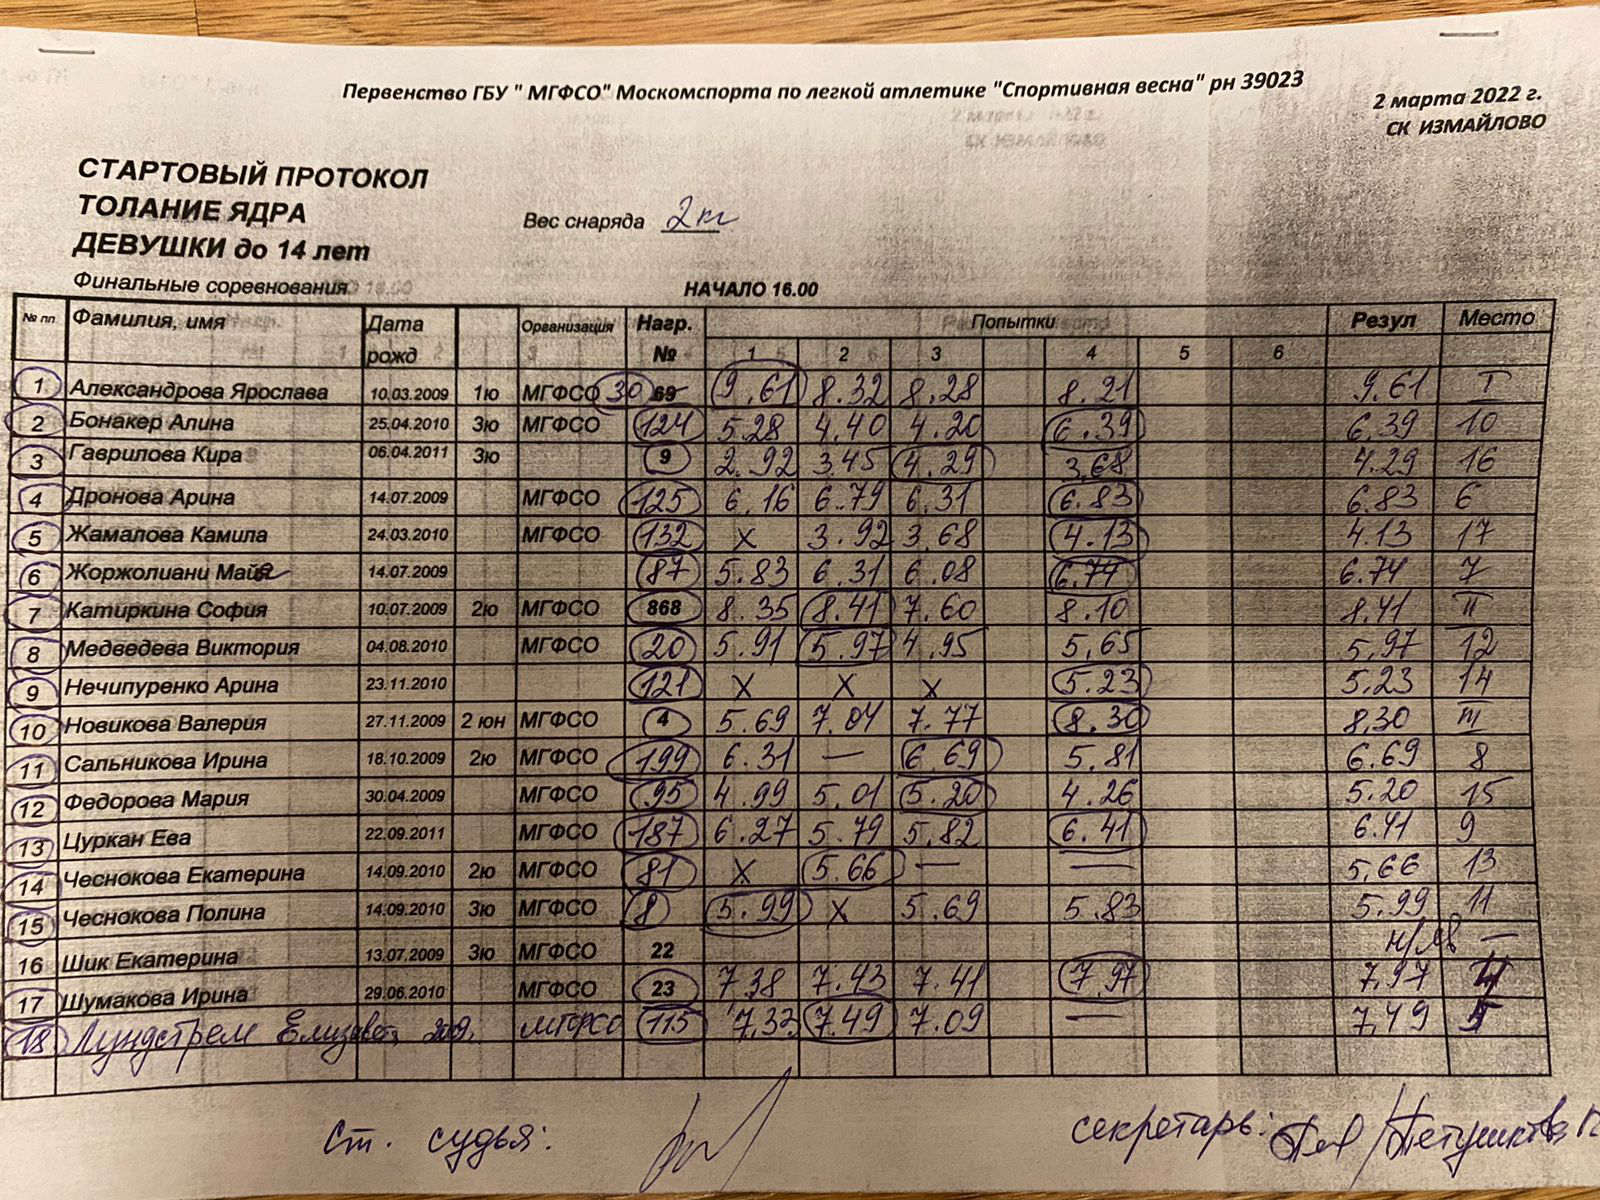 Первенство ГБУ " МГФСО" Москомспорта по легкой атлетике "Спортивная весна" рн 39023
2 марта 2022 г.
СК ИЗМАЙЛОВО
СТАРТОВЫЙ ПРОТОКОЛ
ТОЛАНИЕ ЯДРА
ДЕВУШКИ до 14 лет
Вес снаряда 2 кг
Финальные соревнования
НАЧАЛО 16.00
№ пп Фамилия, имя Дата рожд Организация Нагр. № Попытки Резул Место
1 2 3 4 5 6
1 Александрова Ярослава 10.03.2009 1ю МГФСО 30 69 9.61 8.32 8.28 8.21 9.61 I
2 Бонакер Алина 25.04.2010 3ю МГФСО 124 5.28 4.40 4.20 6.39 6.39 10
3 Гаврилова Кира 06.04.2011 3ю 9 2.92 3.45 4.29 3,68 4.29 16
4 Дронова Арина 14.07.2009 МГФСО 125 6.16 6.79 6.31 6.83 6.83 6
5 Жамалова Камила 24.03.2010 МГФСО 132 х 3.92 3.68 4.13 4.13 17
6 Жоржолиани Майя 14.07.2009 87 5.83 6.31 6.08 6.74 6.74 7
7 Катиркина София 10.07.2009 2ю МГФСО 868 8.35 8.41 7.60 8.10 8.41 II
8 Медведева Виктория 04.08.2010 МГФСО 20 5.91 5.97 4.95 5,65 5,97 12
9 Нечипуренко Арина 23.11.2010 121 х х х 5.23 5.23 14
10 Новикова Валерия 27.11.2009 2 юн МГФСО 4 5.69 7.04 7.77 8.30 8,30 III
11 Сальникова Ирина 18.10.2009 2ю МГФСО 199 6.31 — 6.69 5.81 6.69 8
12 Федорова Мария 30.04.2009 МГФСО 95 4.99 5.01 5.20 4.26 5.20 15
13 Цуркан Ева 22.09.2011 МГФСО 187 6.27 5.79 5.82 6.41 6.41 9
14 Чеснокова Екатерина 14.09.2010 2ю МГФСО 81 х 5.66 — — 5,66 13
15 Чеснокова Полина 14.09.2010 3ю МГФСО 8 5.99 х 5.69 5.83 5.99 11
16 Шик Екатерина 13.07.2009 3ю МГФСО 22 н/яв —
17 Шумакова Ирина 29.06.2010 МГФСО 23 7,38 7.43 7.41 7,97 7,97 4
18 Лундстрем Елизавета 2009. МГФСО 115 7,32 7.49 7.09 — 7,49 5
Ст. судья:
секретарь: